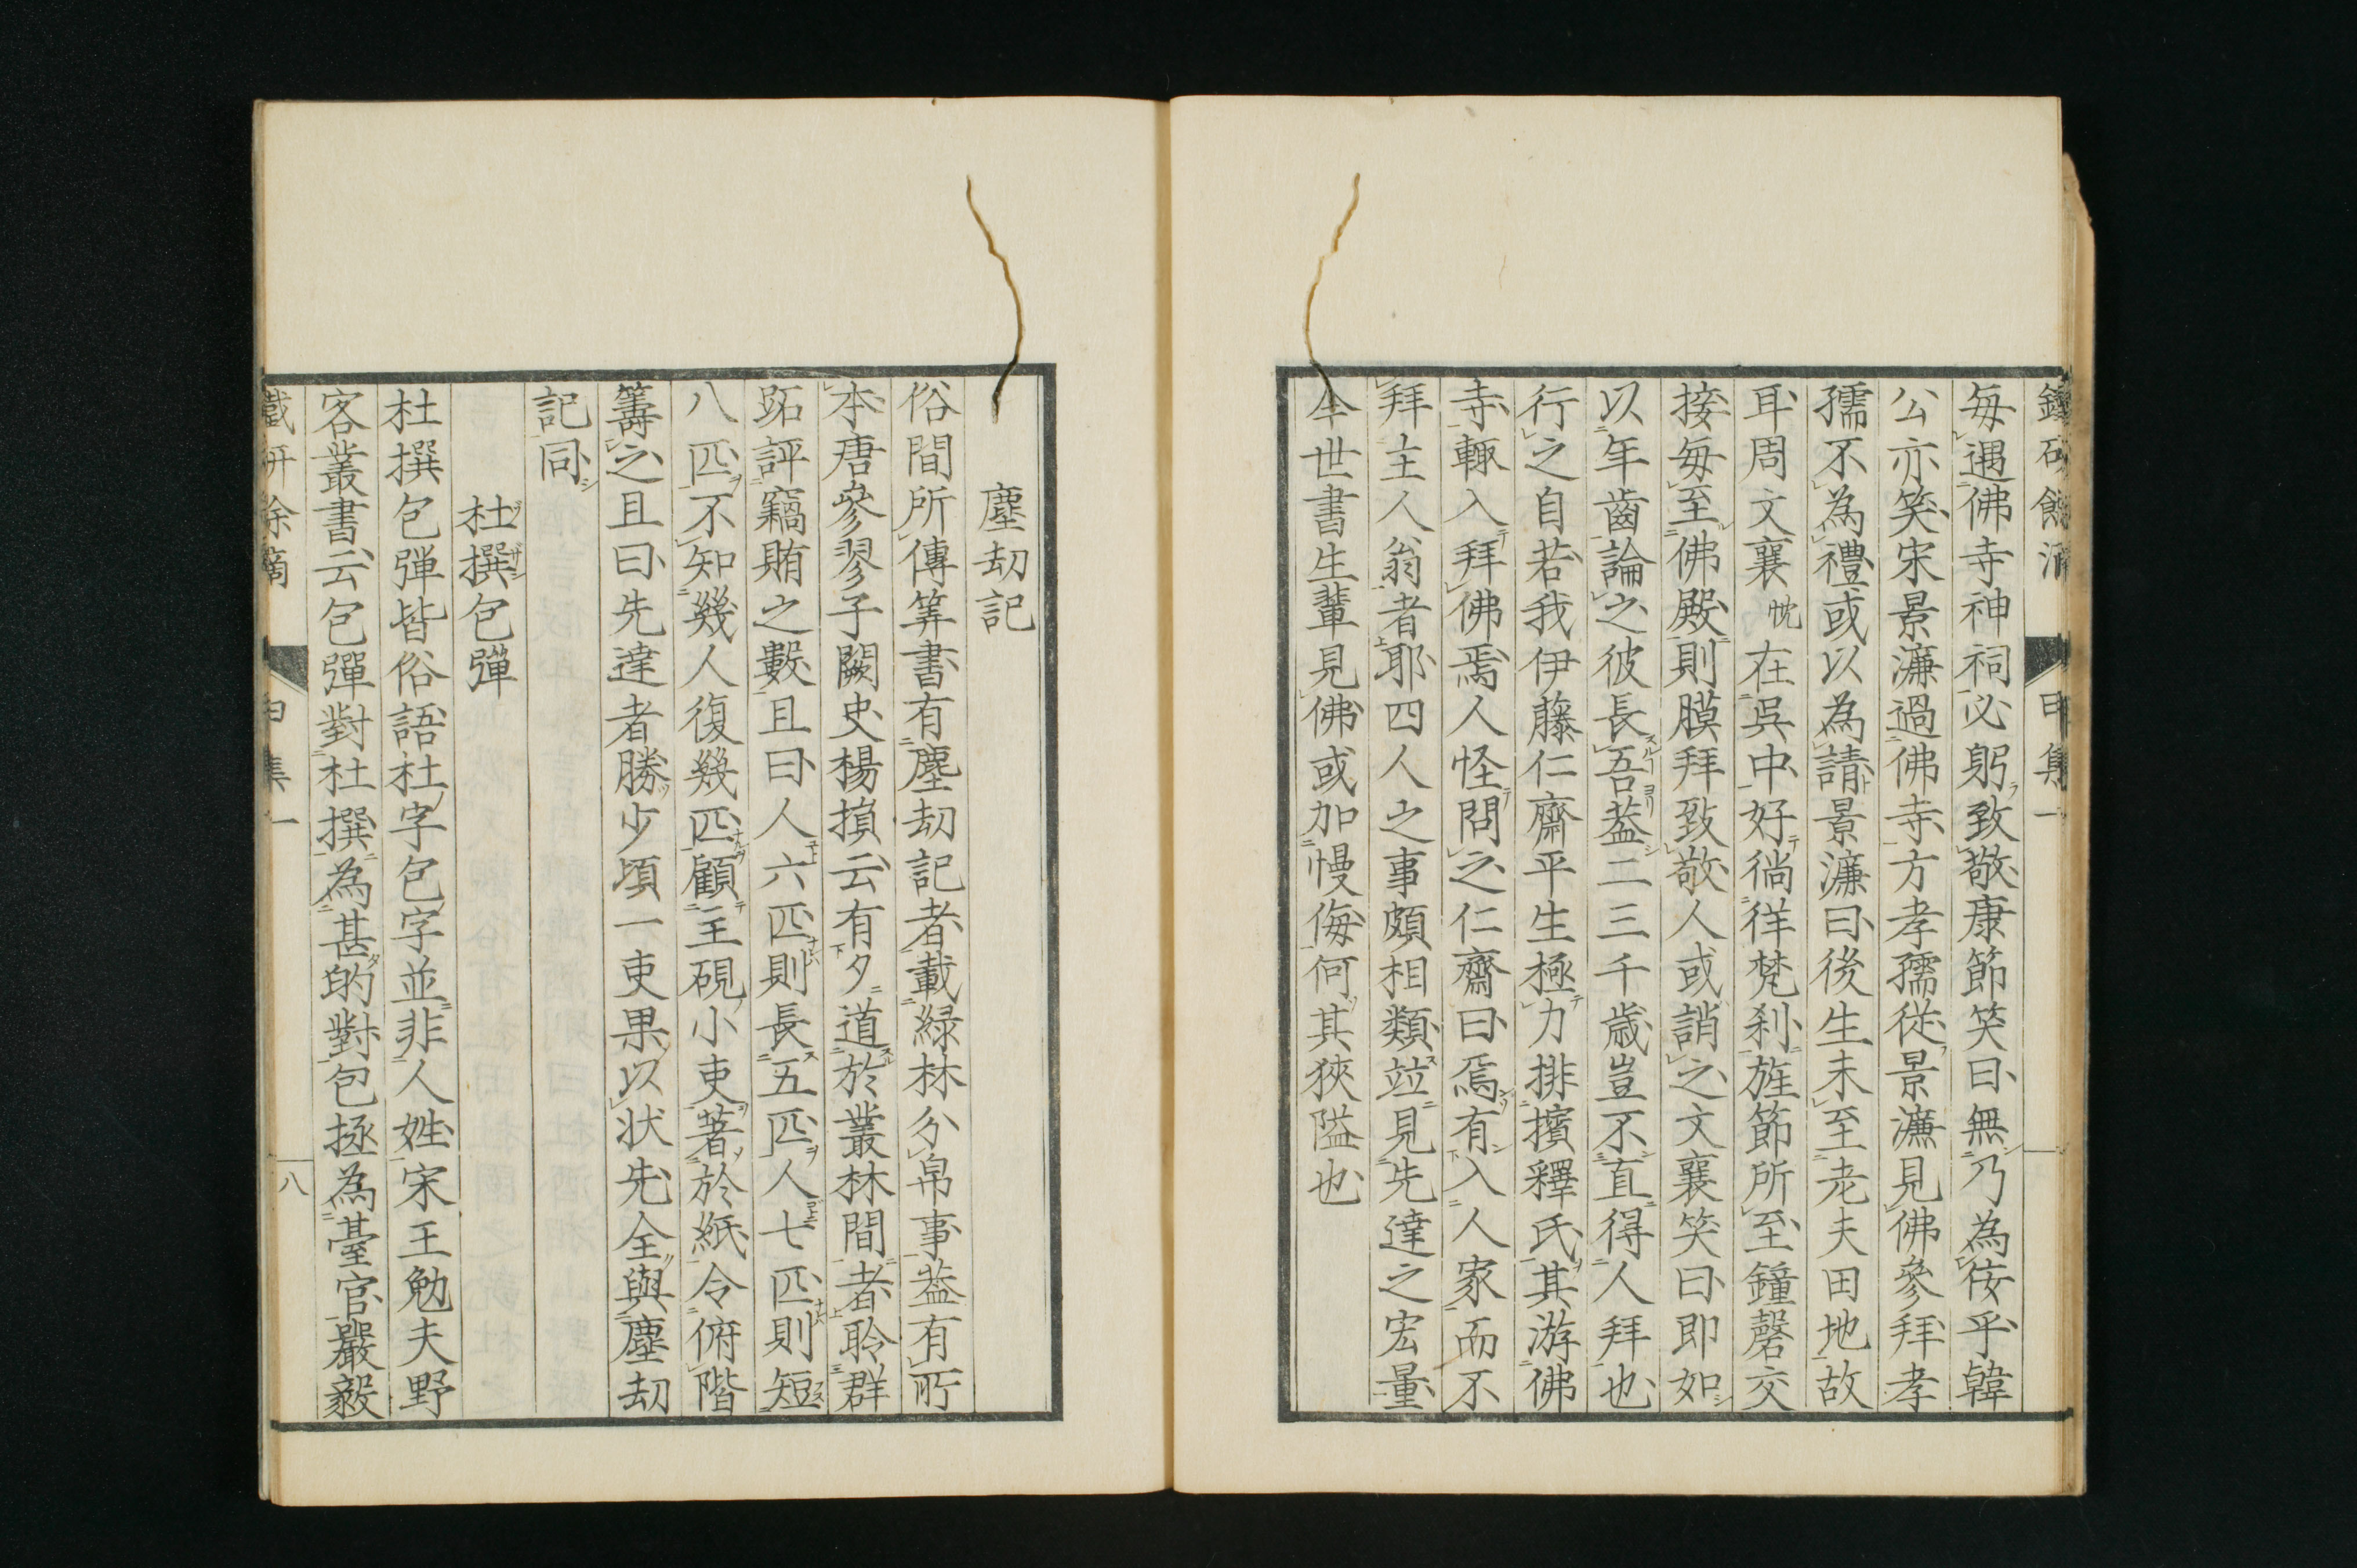 每遇佛寺神祠必躬致敬康節笑曰無乃為佞乎韓
公亦笑宋景濂過佛寺方孝孺從景濂見佛參拜孝
孺不為禮或以為請景濂曰後生未至老夫田地故
耳周文襄忱在吳中好徜徉梵刹旌節所至鐘磬交
接每至佛殿則膜拜致敬人或誚之文襄笑曰即如
以年齒論之彼長吾葢二三千歳豈不直得人拜也
行之自若我伊藤仁齋平生極力排擯釋氏其游佛
寺輙入拜佛焉人怪問之仁齋曰焉有入人家而不
拜主人翁者耶四人之事頗相類竝見先達之宏量
今世書生輩見佛或加慢侮何其狹隘也
塵刧記
俗間所傳筭書有塵刧記者載緑林分帛事葢有所
本唐參寥子闕史楊損云有夕道於叢林間者聆群
跖評竊賄之數且曰人六匹則長五匹人七匹則短
八匹不知幾人復幾匹顧主硯小吏著於紙令俯階
籌之且曰先達者勝少頃一吏果以状先全與塵刧
記同
杜撰包彈
杜撰包彈皆俗語杜字包字並非人姓宋王勉夫野
客叢書云包彈對杜撰為甚的對包拯為臺官嚴毅
八